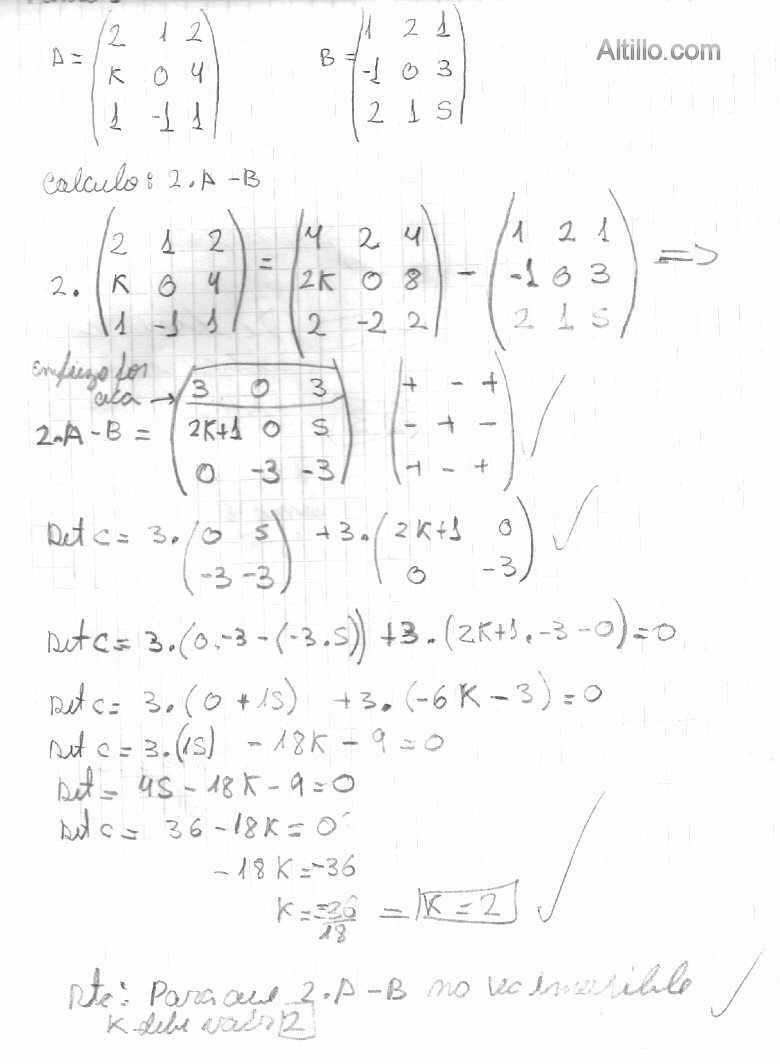 A= (2 1 2
K 0 4
1 -1 1)
B= (1 2 1
-1 0 3
2 1 5)
Altillo.com
Calculo: 2.A-B
2. (2 1 2
K 0 4
1 -1 1) = (4 2 4
2K 0 8
2 -2 2) - (1 2 1
-1 0 3
2 1 5) =>
empiezo por
aca →
2.A-B = (3 0 3
2K+1 0 5
0 -3 -3)
(+ - +
- + -
+ - +) ✓
Det C= 3. (0 5
-3 -3) +3. (2K+1 0
0 -3) ✓
Det C= 3.(0.-3-(-3.5)) +3.(2K+1.-3-0)=0
Det C= 3.(0+15) +3.(-6K-3)=0
Det C= 3.(15) -18K-9=0
Det= 45-18K-9=0
Det C= 36-18K=0
-18K=-36
K=-36/18 = K=2 ✓
Rta: Para que 2.A-B no sea inversible ✓
K debe valer 2